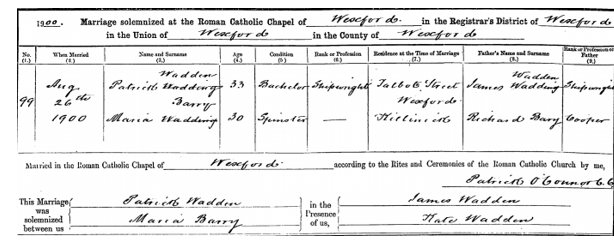 1900. Marriage solemnized at the Roman Catholic Chapel of Wexford. in the Registrar's District of Wexford
in the Union of Wexford in the County of Wexford
No. (1.) When Married (2.) Name and Surname (3.) Age (4.) Condition (5.) Rank or Profession (6.) Residence at the Time of Marriage (7.) Father's Name and Surname (8.) Rank or Profession of Father (9.)
Wadden Wadden
Aug Patrick Wadding 33 Bachelor Shipwright Talbot Street James Wadding Shipwright
99 26th Barry Wexford
1900 Maria Wadding 30 Spinster — Killinick Richard Barry Cooper
Married in the Roman Catholic Chapel of Wexford. according to the Rites and Ceremonies of the Roman Catholic Church by me,
Patrick O'Connor C.C.
This Marriage was solemnized between us Patrick Wadden in the Presence of us, James Wadden
Maria Barry Kate Wadden